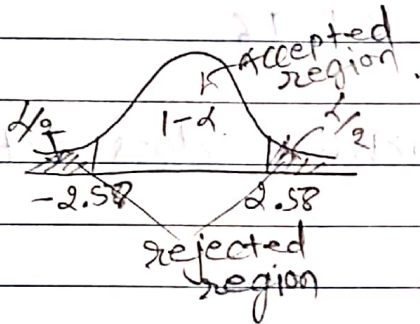 Accepted
region.
α/2
1-α
α/2
-2.58
2.58
rejected
region